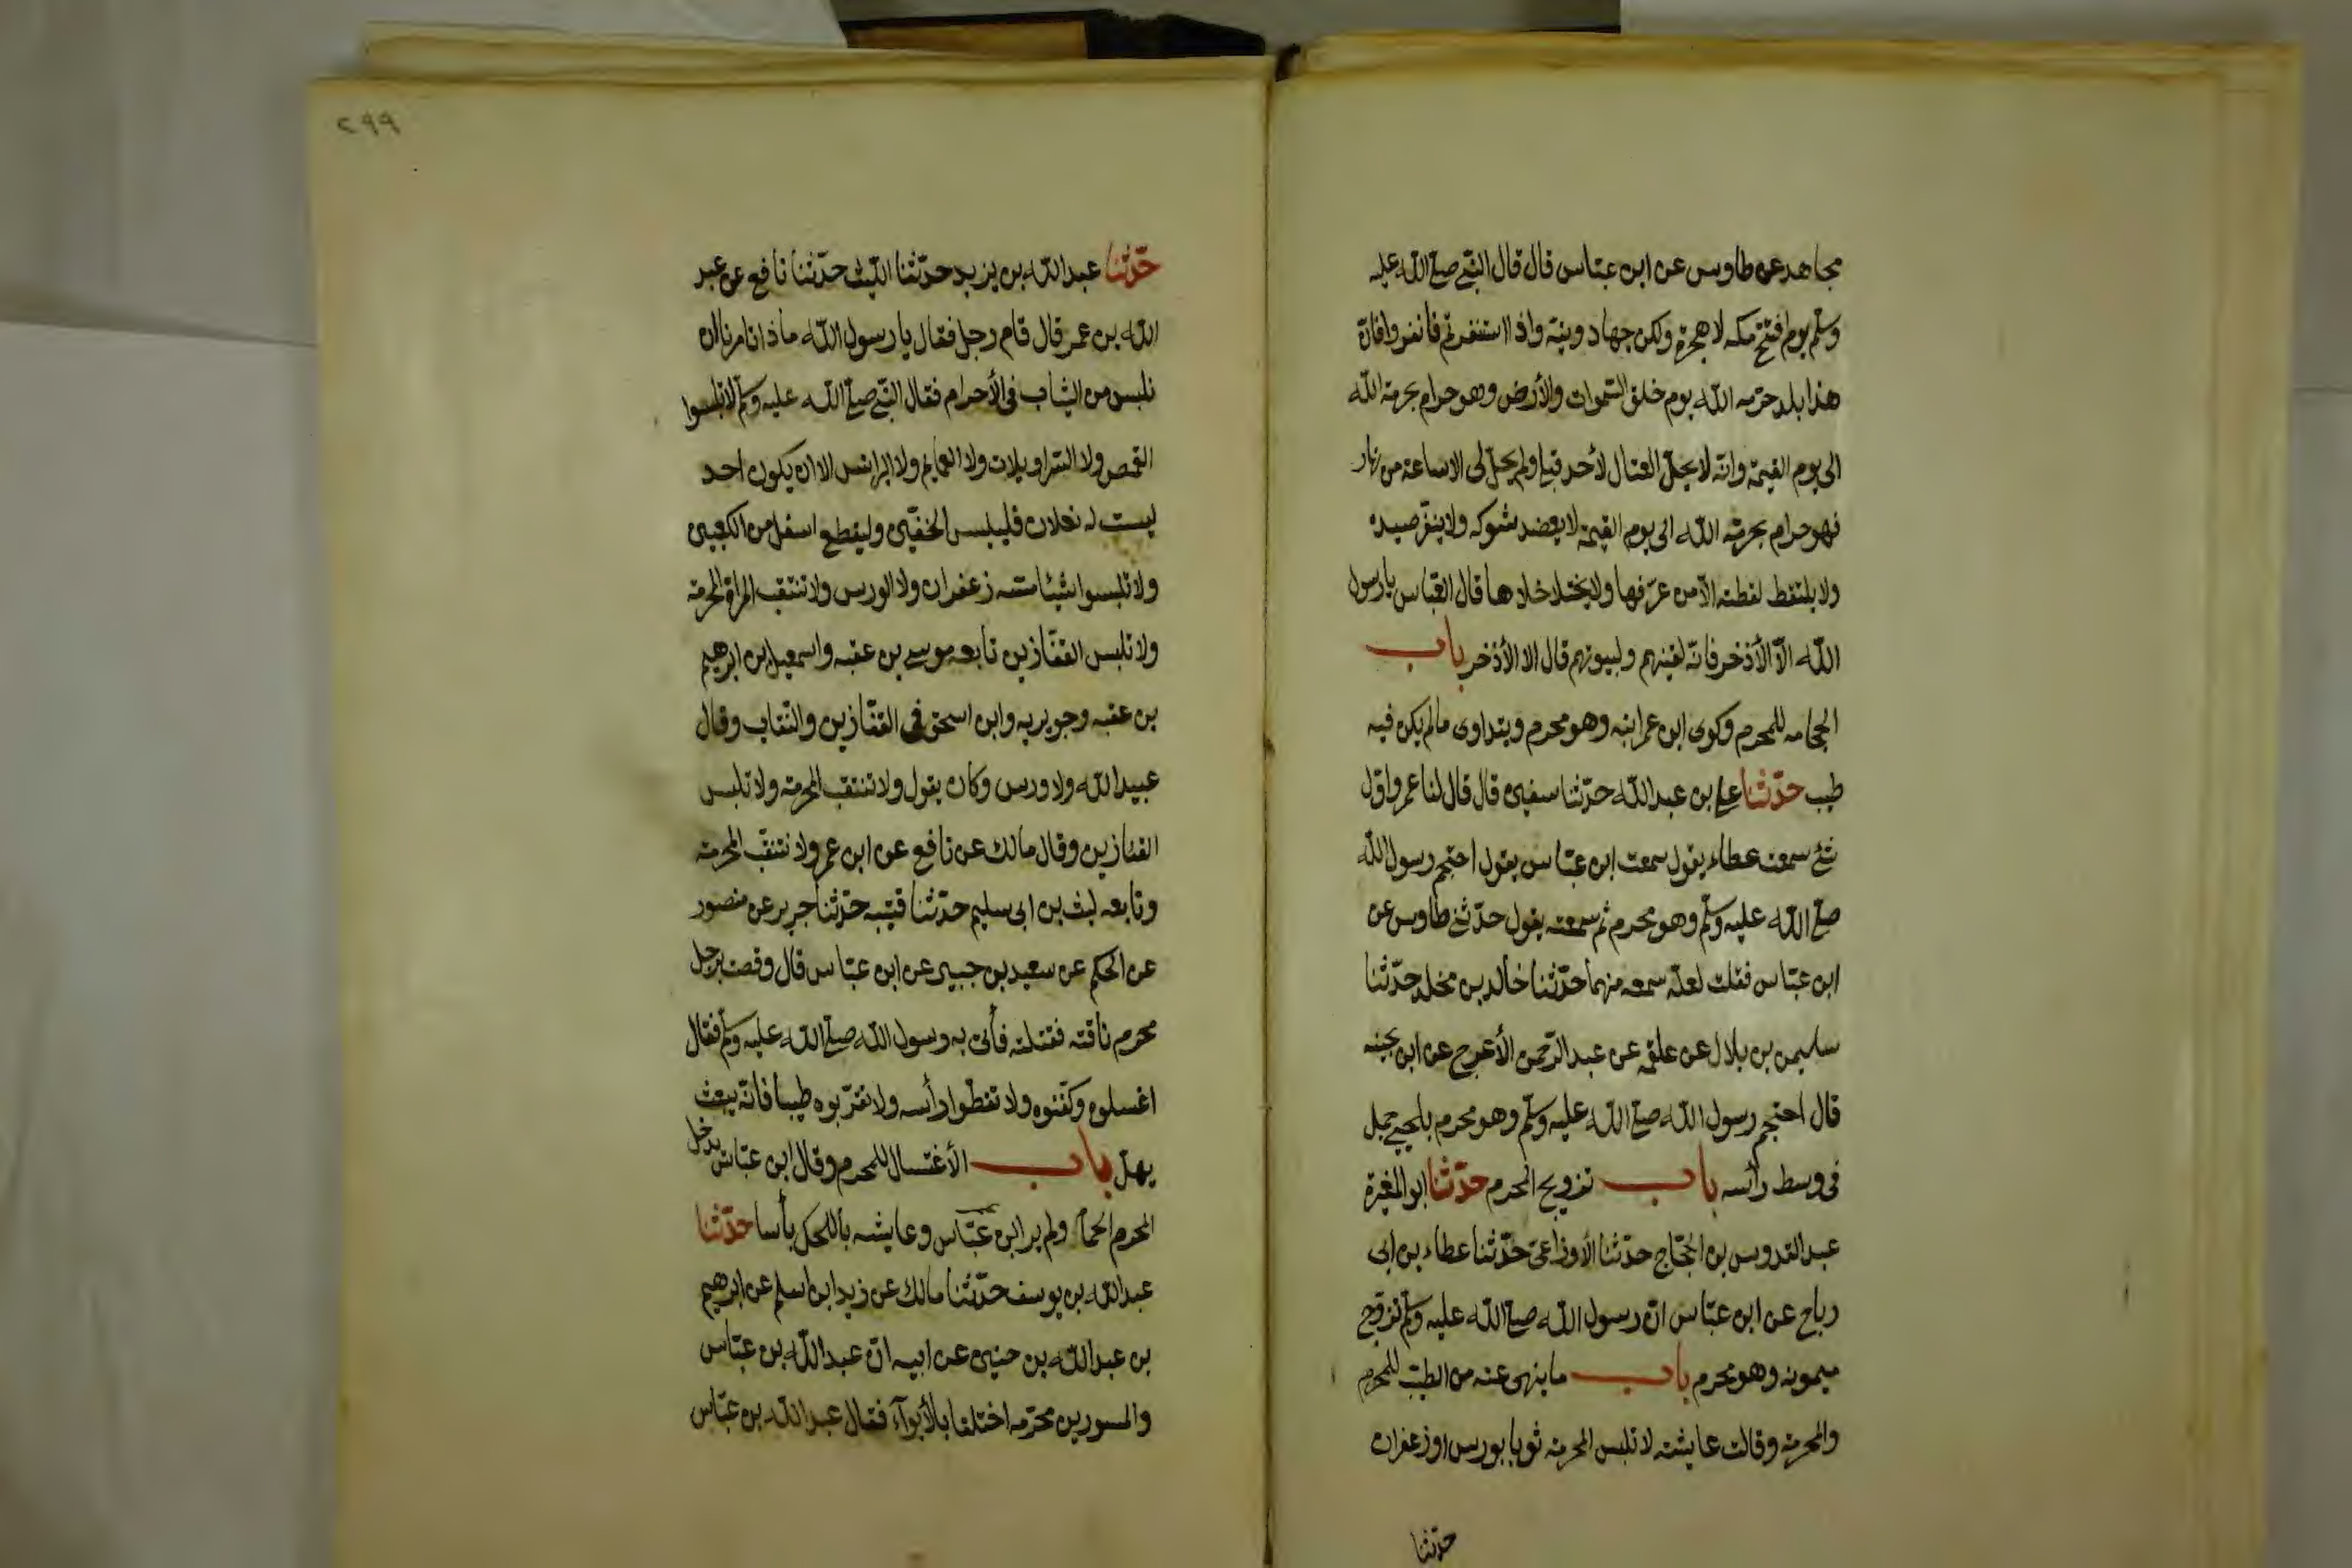 مجاهد عن طاوس عن ابن عباس قال قال النبي صلى الله عليه
وسلم يوم فتح مكه لا هجرة ولكن جهاد ونية واذا استنفرتم فانفروا فانّ
هذا بلد حرّمه الله يوم خلق السموات والأرض وهو حرام بحرمة الله
الى يوم القيمة وانّه لا يحلّ القتال لأحد قبلي ولم يحلّ لي الا ساعة من نهار
فهو حرام بحرمة الله الى يوم القيمة لا يعضد شوكه ولا ينفّر صيده
ولا يلتقط لقطته الّا من عرّفها ولا يختلا خلاها قال العبّاس يا رسول
الله الّا الأذخر فانّه لقينهم ولبيوتهم قال الا الأذخر باب
الحجامه للمحرم وكوى ابن عمر ابنه وهو محرم ويتداوى مالم يكن فيه
طيب حدّثنا علي بن عبد الله حدّثنا سفين قال قال لنا عمرو اوّل
شئ سمعت عطاء يقول سمعت ابن عبّاس يقول احتجم رسول الله
صلى الله عليه وسلّم وهو محرم ثم سمعته يقول حدّثني طاوس عن
ابن عبّاس فقلت لعلّه سمعه منهما حدّثنا خالد بن مخلد حدّثنا
سليمن بن بلال عن علقمه عن عبد الرّحمن الأعرج عن ابن بحينه
قال احتجم رسول الله صلى الله عليه وسلّم وهو محرم بلحيي جمل
في وسط رأسه باب تزويج المحرم حدّثنا ابو المغيرة
عبد القدوس بن الحجّاج حدّثنا الأوزاعيّ حدّثنا عطاء بن ابى
رباح عن ابن عبّاس انّ رسول الله صلى الله عليه وسلّم تزوّج
ميمونه وهو محرم باب ما ينهى عنه من الطيب للمحرم
والمحرمة وقالت عايشة لا تلبس المحرمة ثوبا بورس او زعفران
حدّثنا
٢٩٩
حدّثنا عبد الله بن يزيد حدّثنا اللّيث حدّثنا نافع عن عبد
الله بن عمر قال قام رجل فقال يا رسول الله ماذا تامرنا ان
نلبس من الثياب في الأحرام فقال النّبي صلى الله عليه وسلّم لا تلبسوا
القمص ولا السّراويلات ولا العمايم ولا البرانس الا ان يكون احد
ليست له نعلان فليلبس الخفّين وليقطع اسفل من الكعبين
ولا تلبسوا شيئا مسّه زعفران ولا الورس ولا تنتقب المراة المحرمة
ولا تلبس القفّازين تابعه موسى بن عقبه واسمعيل بن ابرهيم
بن عقبه وجويريه وابن اسحق في القفّازين والنّقاب وقال
عبيد الله ولا ورس وكان يقول ولا تنتقب المحرمة ولا تلبس
القفازين وقال مالك عن نافع عن ابن عمر ولا تنتقب المحرمة
وتابعه ليث بن ابى سليم حدّثنا قتيبه حدّثنا جرير عن منصور
عن الحكم عن سعيد بن جبير عن ابن عبّاس قال وقصت برجل
محرم ناقته فقتلته فأتى به رسول الله صلى الله عليه وسلّم فقال
اغسلوه وكفّنوه ولا تغطّوا رأسه ولا تقرّبوه طيبا فانّه يبعث
يهلّ باب الأغتسال للمحرم وقال ابن عبّاس يدخل
المحرم الحمّام ولم ير ابن عبّاس وعايشه بالحكّ بأسا حدّثنا
عبد الله بن يوسف حدّثنا مالك عن زيد ابن اسلم عن ابرهيم
بن عبد الله بن حنين عن ابيه انّ عبد الله بن عبّاس
والمسور بن مخرمه اختلفا بالأبوآء فقال عبد الله بن عبّاس